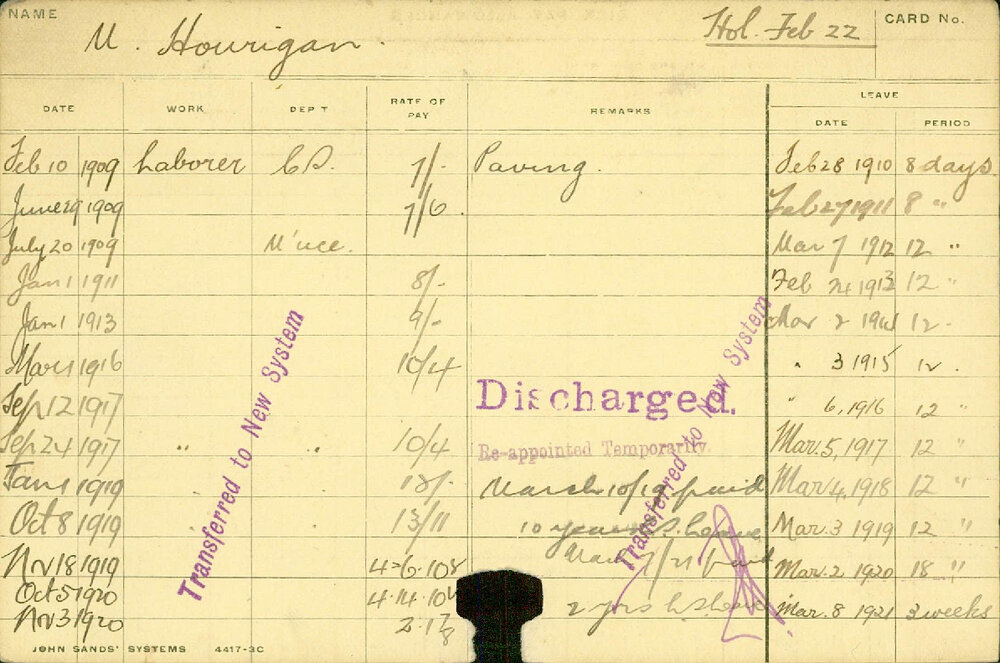 NAME
M. Hourigan.
Hol. Feb 22
CARD No.
DATE WORK DEP'T RATE OF PAY REMARKS LEAVE
DATE PERIOD
Feb 10 1909 Laborer 7/- Paving. Feb 28 1910 8 days.
June 29 1909 7/6. Feb 27 1911 8 "
July 20 1909 M'nce. Mar 7 1912 12 "
Jan 1 1911 8/- Feb 24 1913 12 "
Jan 1 1913 9/- Mar 2 1914 12 .
Mar 1 1916 10/4 " 3 1915 12 .
Discharged.
Sep 12 1917 " 6, 1916 12 "
Sep 24 1917 " " 10/4 Re-appointed Temporarily. Mar. 5, 1917 12 "
Jan 1 1919 March 10/19 paid Mar 4, 1918 12 "
Oct 8 1919 13/11 10 years Mar. 3 1919 12 "
Nov 18 1919 /21 paid Mar. 2 1920 18 "
Oct 5 1920 2 yrs Mar. 8 1921 3 weeks
Nov 3 1920
Transferred to New System
Transferred to New System
JOHN SANDS' SYSTEMS 4417-3C